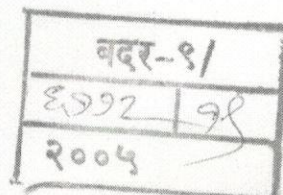 बदर-९/
६७१२ | १९
२००५